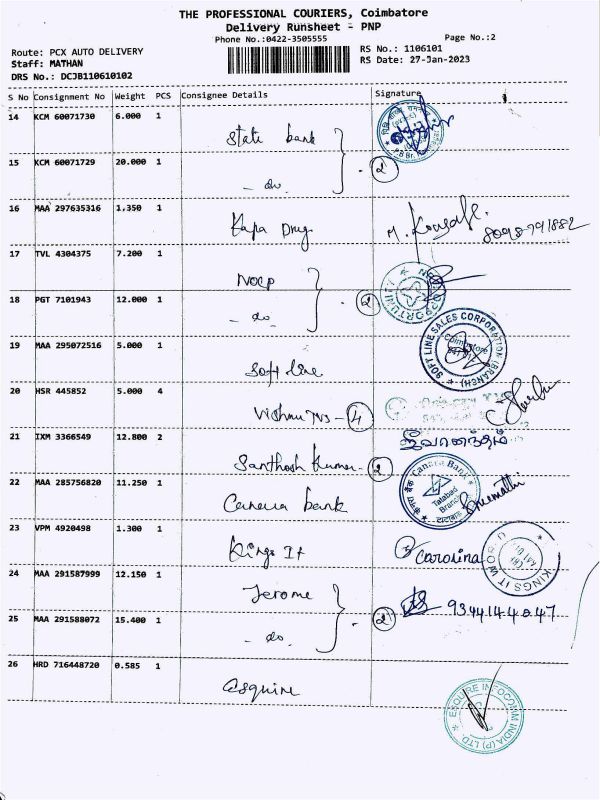 THE PROFESSIONAL COURIERS, Coimbatore
Delivery Runsheet - PNP
Phone No.:0422-3505555
Page No.:2
Route: PCX AUTO DELIVERY
RS No.: 1106101
Staff: MATHAN
RS Date: 27-Jan-2023
DRS No.: DCJB110610102
S No Consignment No Weight PCS Consignee Details Signature
14 KCM 60071730 6.000 1 State bank
15 KCM 60071729 20.000 1 - do. 2
16 MAA 297635316 1.350 1 Kapa Drug M. 8098791882
17 TVL 4304375 7.200 1 NOCP
18 PGT 7101943 12.000 1 - do. 2
19 MAA 295072516 5.000 1 Soft line SOFT LINE SALES CORPORATION (BRANCH) Coimbatore
20 HSR 445852 5.000 4 Vishnu - 4
21 IXM 3366549 12.800 2 Santhosh Kumar - 2 ஜீவானந்தம்
22 MAA 285756820 11.250 1 Canara bank Canara Bank Tatabad Branch
23 VPM 4920498 1.300 1 Kings It Carolina KINGS IT WORLD
24 MAA 291587999 12.150 1 Jerome
25 MAA 291588072 15.400 1 - do. 2 9344144047
26 HRD 716448720 0.585 1 Esquire ESQUIRE INFOCOMM INDIA (P) LTD.